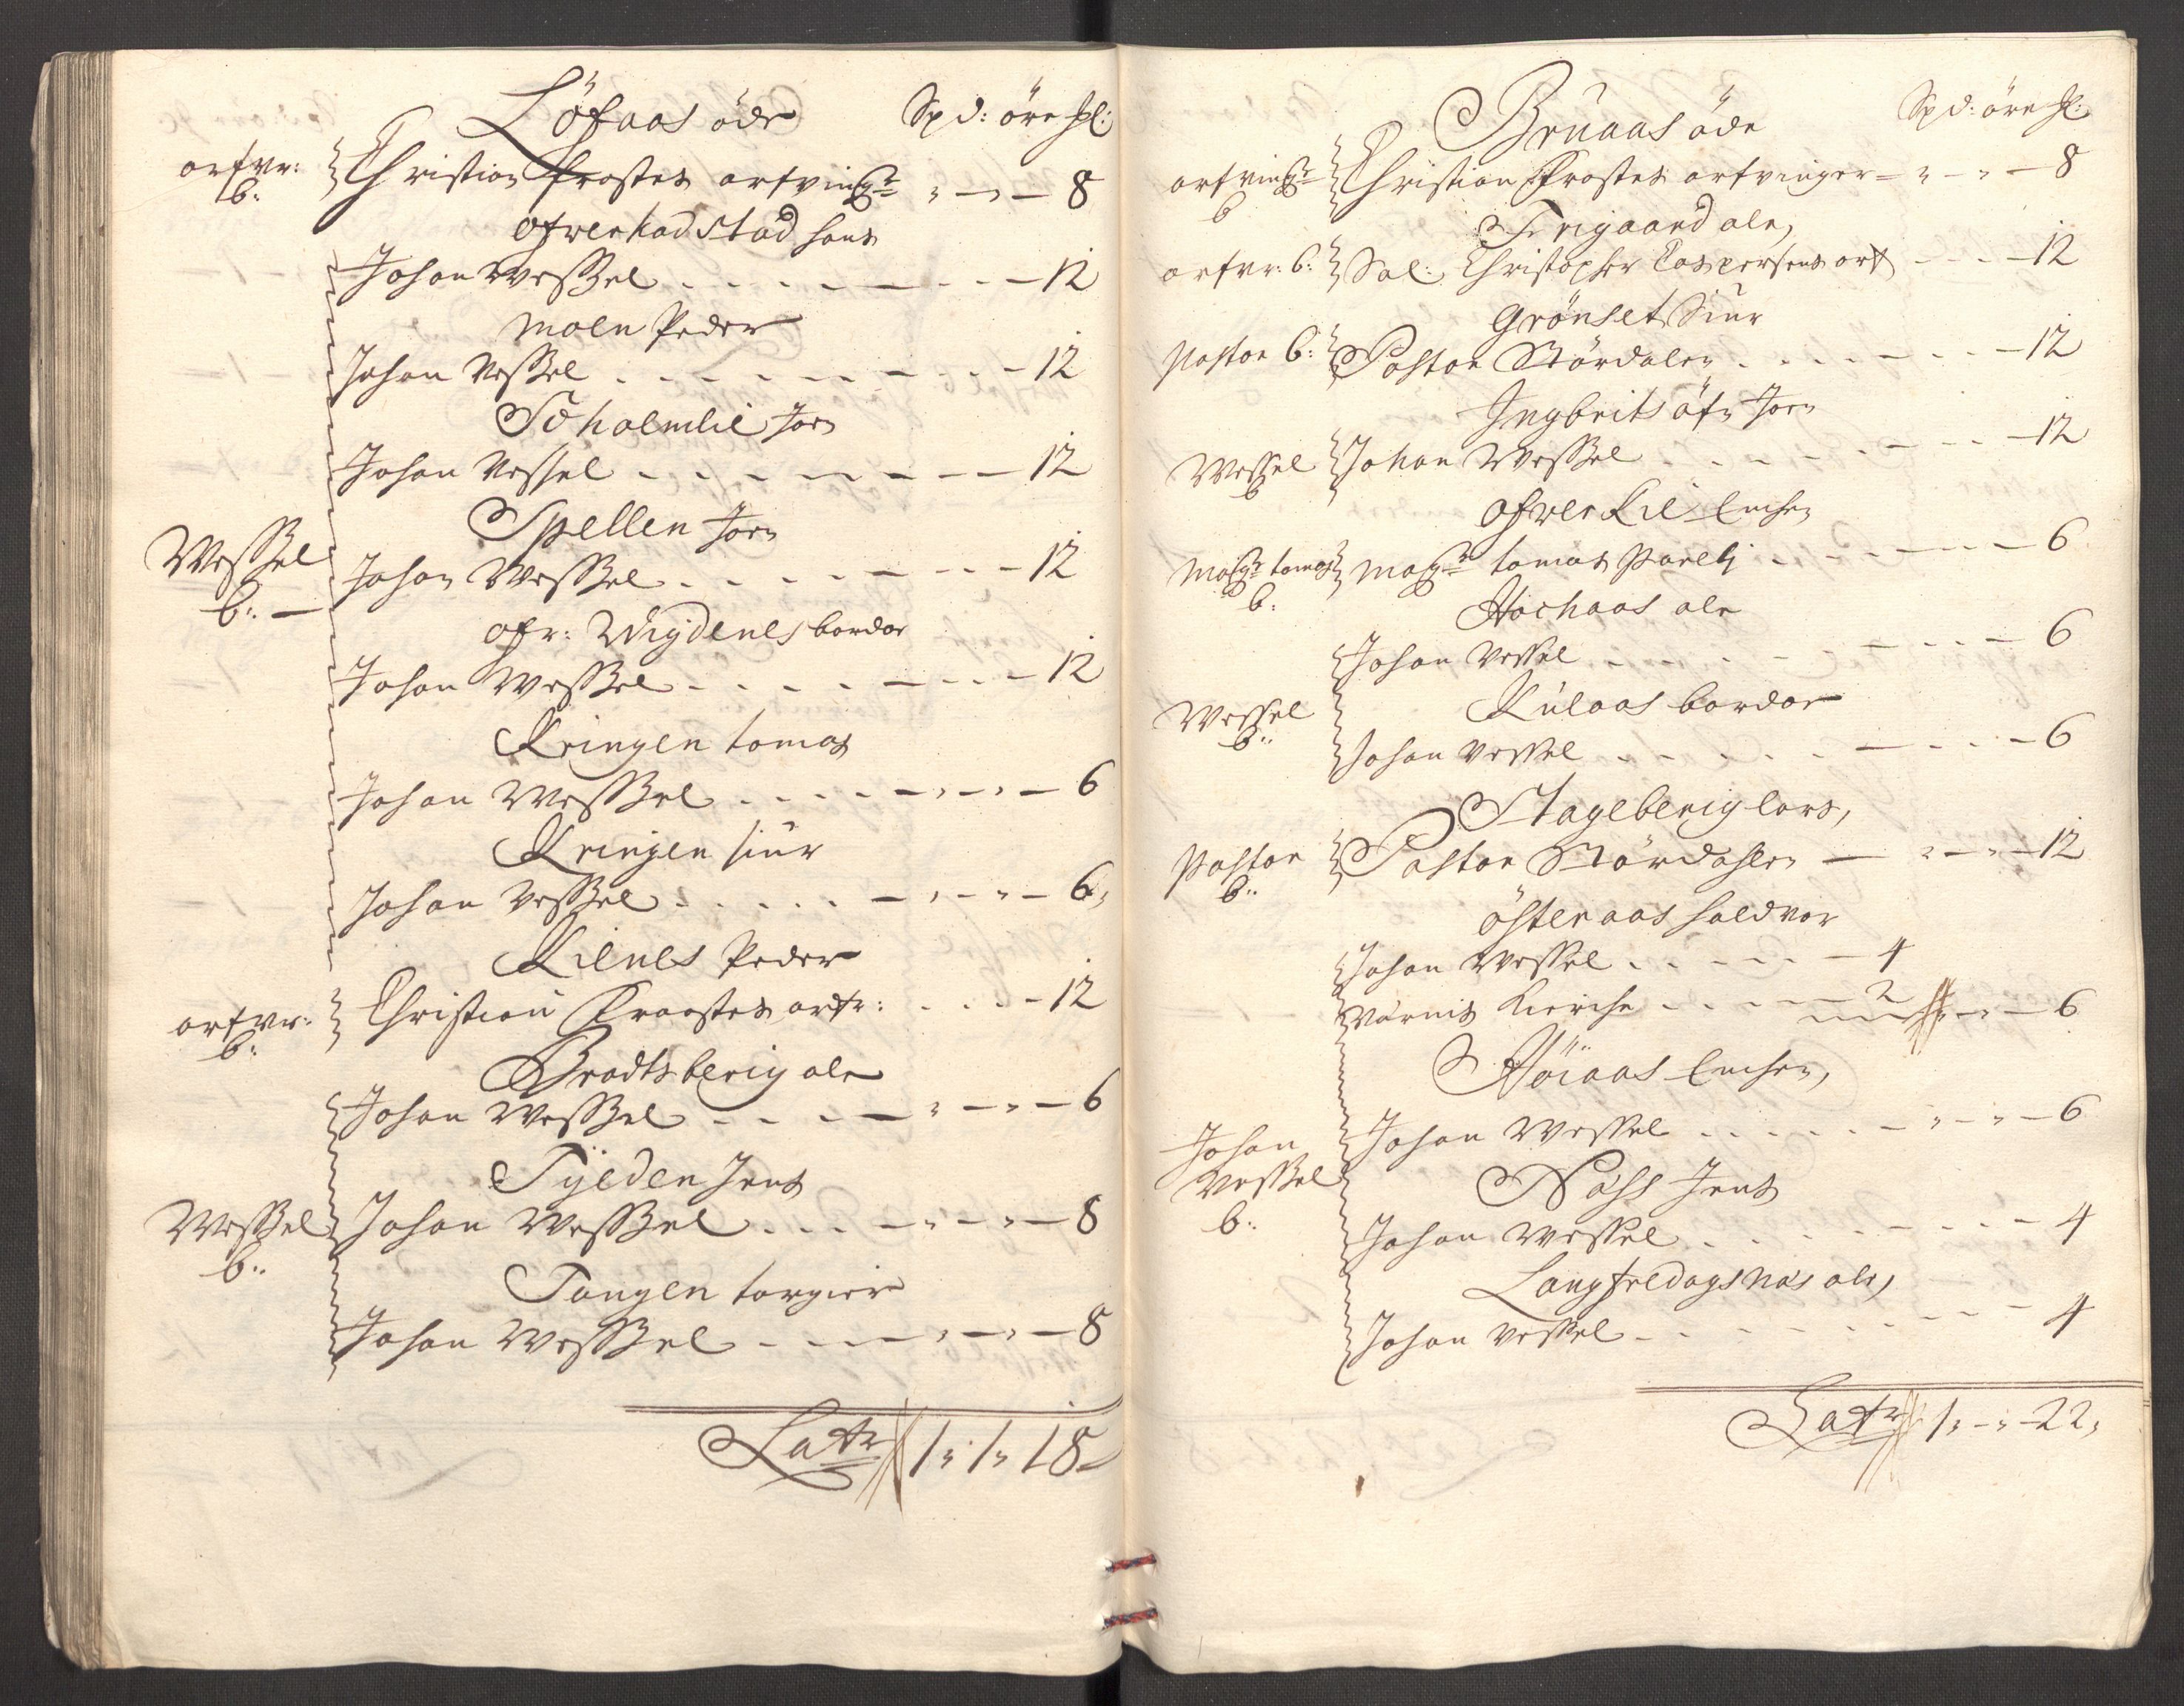 Löfaas öde Spd: öre sl:
arfvr: Christian Frostes arfving:r " — " — 8
b:
ofverkadstad hans
Johan Wessel . . . . . — 12
moen Peder
Johan Wessel . . . . — 12
Scholmlie Jon
Johan Wessel . . . — 12
Spellen Jon
Wessel Johan Wessel . . . . — 12
b: —
ofr: Wigdenes bordor
Johan Wessel . . . . — 12
Kringen tomas
Johan Wessel . . . . — " — " — 6
Kringen siur
Johan Wessel . . . . . — " — " — 6
Kilnes Peder
arfvr: Christian Froostes arfr: . . . — 12
b:
Brodtsberig ole
Johan Wessel . . . — " — " — 6
Tyeden Jens
Wessel Johan Wessel . . . — " — " — 8
b:
Tangen torgier
Johan Wessel . . — " — " — 8
Latr 1 " 1 " 18

Bruaas öde Spd: öre sl:
arfving:r Christian Frostes arfvinger — " — " — 8
b
Trigaard ole,
arfvr: b: Sal: Christopher Caspersens arf . . . — 12
Grönset Siur
Pastor b: Pastor Stördalen . . . . . — 12
Ingbritsöfn Jon
Wessel Johan Wessel . . . . . — 12
b
ofver Lie Enchen
Mag:r tomas Mag:r tomas Parelj . . . — 6
b:
Hochaas ole
Johan Wessel . . . . . — 6
Kulaas bordor
Wessel
b: Johan Wessel . . . . . — 6
Stageberig lars,
Pastor Pastor Stördahlen — " — " — 12
b:
österaas haldvor
Johan Wessel . . . . . — 4
Värnis Kierche . . . . — 2 " — " — 6
Höiaas Enchen,
Johan Johan Wessel . . . . . — " — " — 6
Wessel Nähs Jens
b: Johan Wessel . . . . . — 4
Langfeldagsnäs ole,
Johan Wessel . . . . . — 4
Latr 1 " — " — 22 "